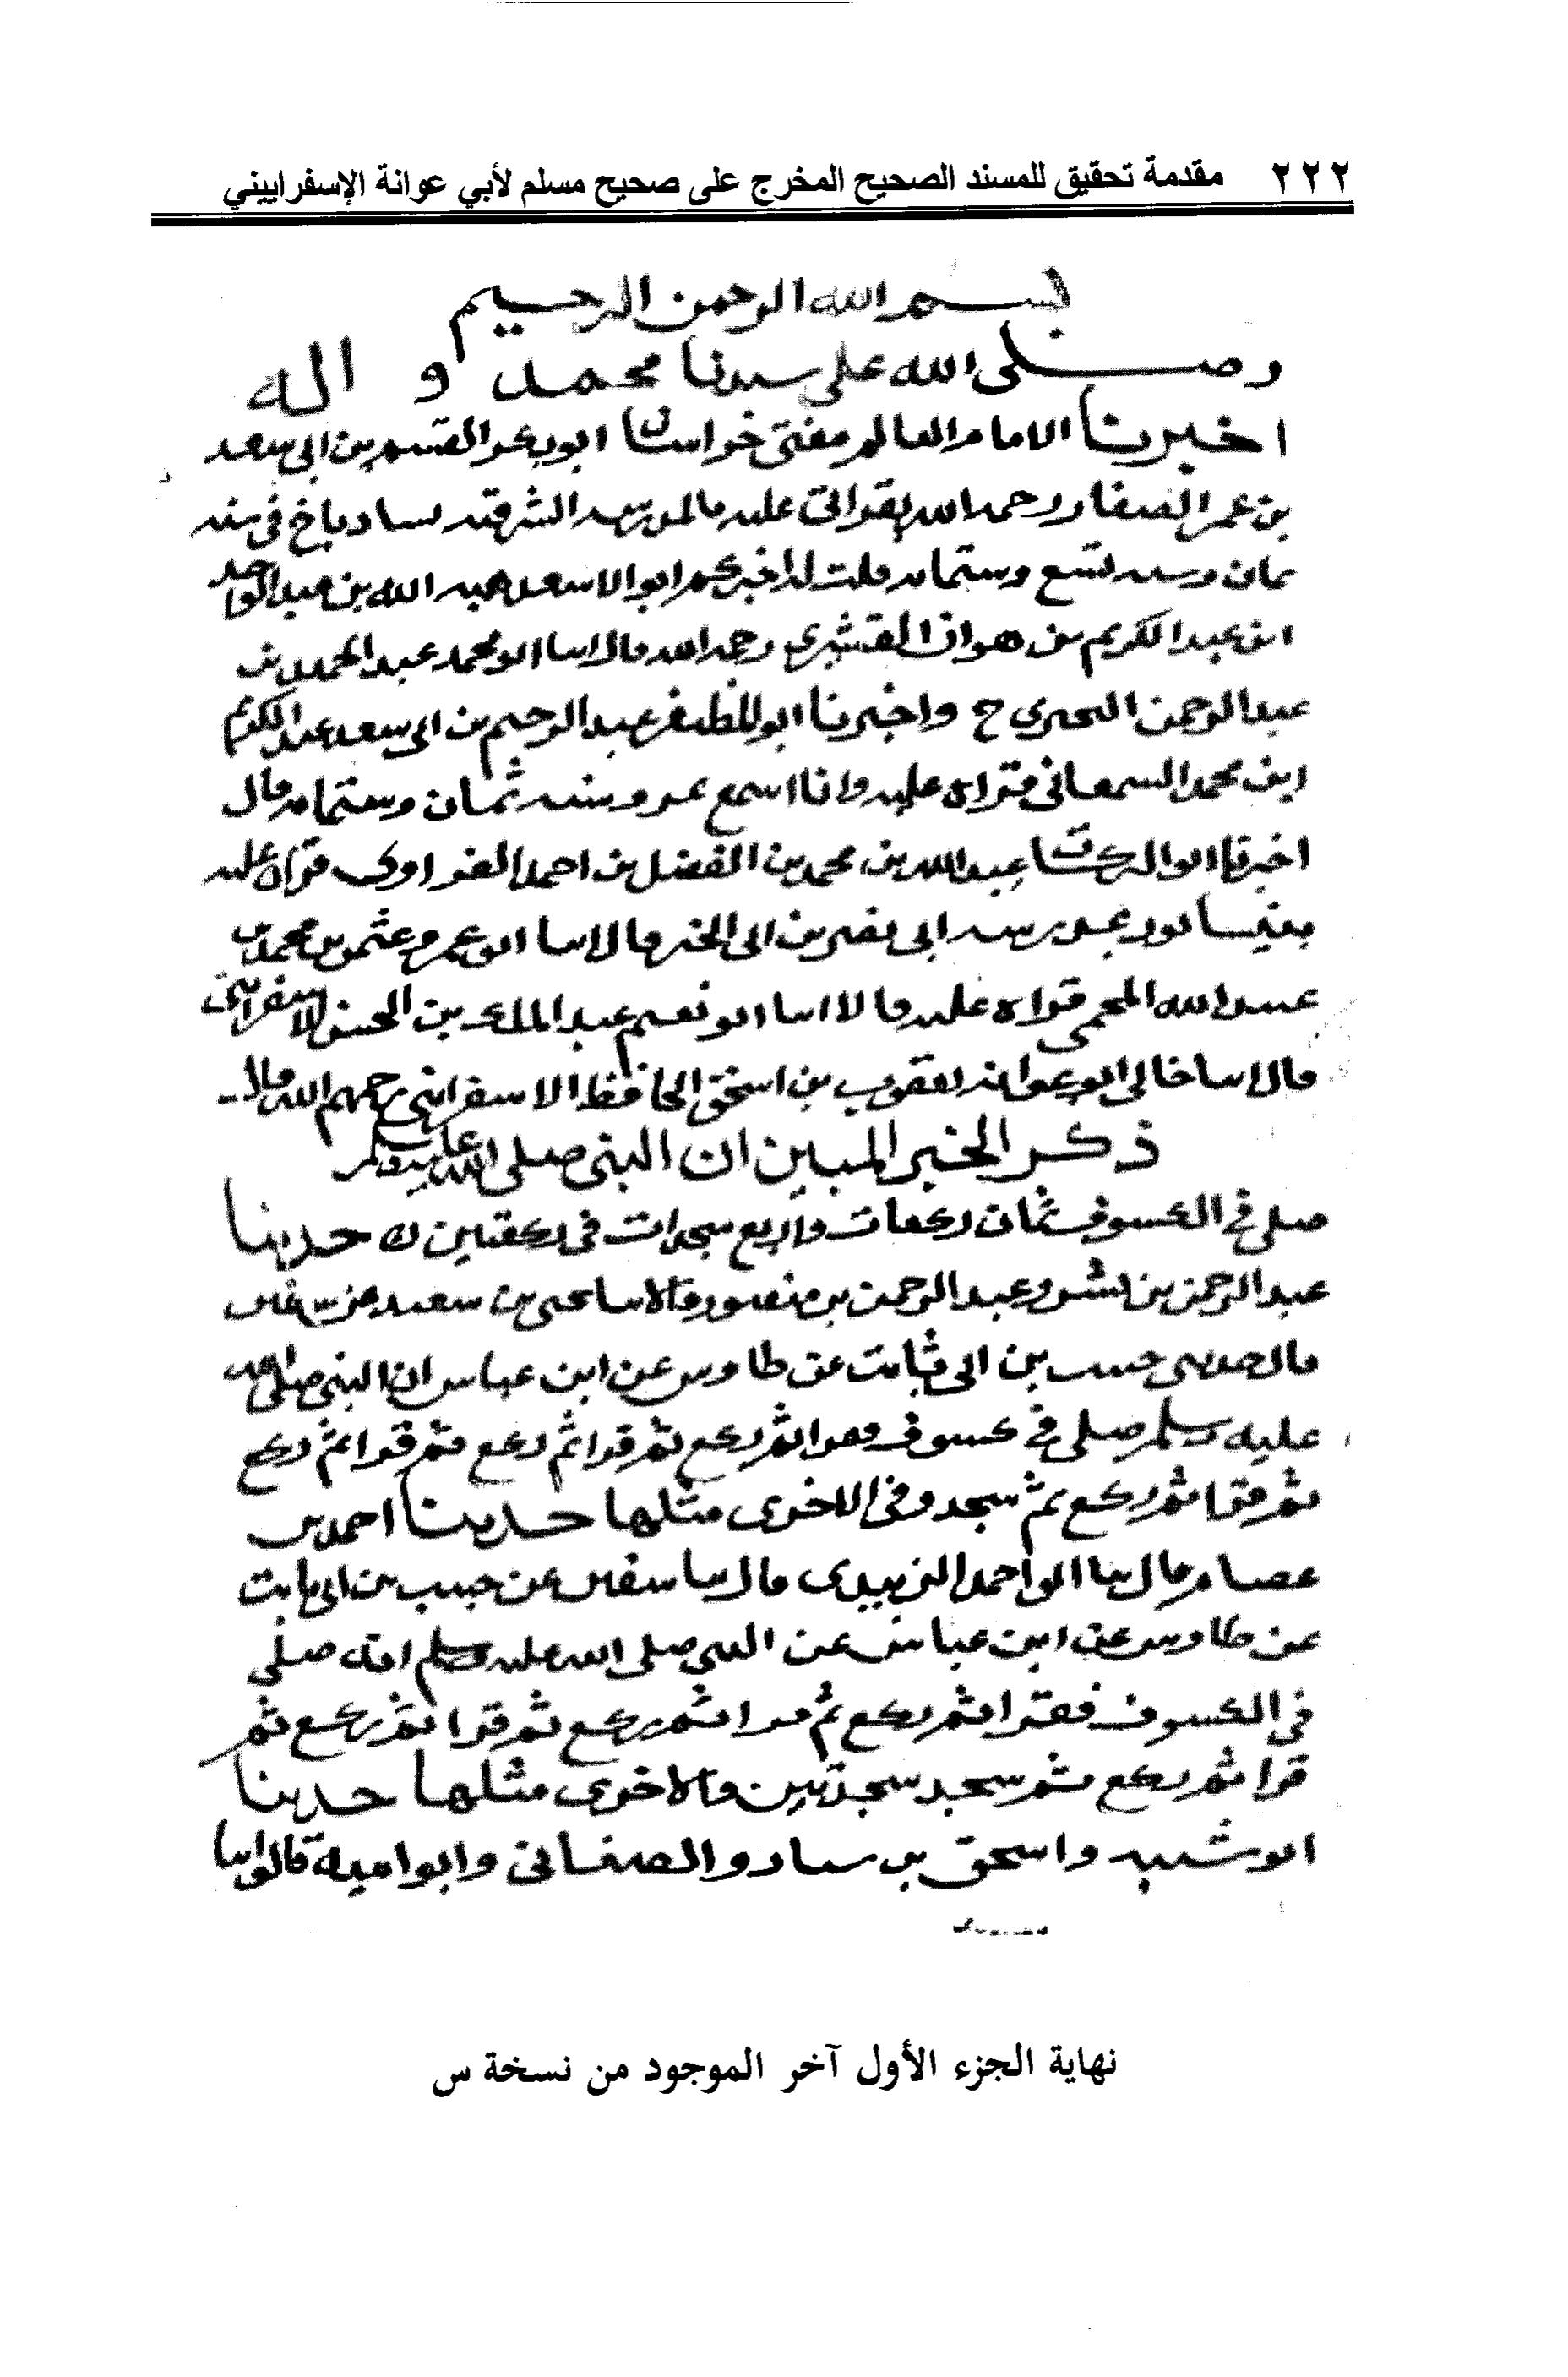 ٢٢٢ مقدمة تحقيق للمسند الصحيح المخرج على صحيح مسلم لأبي عوانة الإسفراييني
بسم الله الرحمن الرحيم
وصلى الله على سيدنا محمد و اله
اخبرنا الامام العالم مفتي خراسان ابو بكر القسم بن ابي سعد
بن عمر الصفار رحمه الله بقراتي عليه الشرقيه بساد ياخ في سنه
ثمان وسنه تسع وستمايه قلت له اخبركم ابو الاسعد هبه الله بن عبد الواحد
ابن عبد الكريم بن هوازن القشيري رحمه الله قال اسا ابو محمد عبد الحميد بن
عبد الرحمن البحيري ح واخبرنا ابو المظفر عبد الرحيم بن ابي سعد عبد الكريم
ابن محمد السمعاني قراه عليه وانا اسمع بمرو سنه ثمان وستمايه قال
اخبرنا ابو البركات عبد الله بن محمد بن الفضل بن احمد الفراوي قراه عليه
بنيسابور ابي نصر بن ابي الخير قالا اسا ابو عمرو عثمن بن محمد بن
عبيد الله المحمي قراه عليه قالا اسا ابو نعيم عبد الملك بن الحسن الاسفرايني
قال اسا خالي ابو عوانه يعقوب بن اسحق الحافظ الاسفرايني رحمهم الله قال
ذكر الخبر المبين ان النبي صلى الله عليه وسلم
صلى في الكسوف ثمان ركعات واربع سجدات في ركعتين حدثنا
عبد الرحمن بن بشر وعبد الرحمن بن منصور قالا سا يحيى بن سعيد عن سفين
قال حدثني حبيب بن ابي ثابت عن طاوس عن ابن عباس ان النبي صلى الله
عليه وسلم صلى في كسوف فقرا ثم ركع ثم قرا ثم ركع ثم قرا ثم ركع
ثم قرا ثم ركع ثم سجد وفي الاخرى مثلها حدثنا احمد بن
عصام قال سا ابو احمد الزبيدي قال سا سفين عن حبيب بن ابي ثابت
عن طاوس عن ابن عباس عن النبي صلى الله عليه وسلم انه صلى
في الكسوف فقرا ثم ركع ثم قرا ثم ركع ثم قرا ثم ركع ثم
قرا ثم ركع ثم سجد سجدتين والاخرى مثلها حدثنا
ابو شيبه واسحق بن سيار والصغاني وابو اميه قالوا سا
نهاية الجزء الأول آخر الموجود من نسخة س